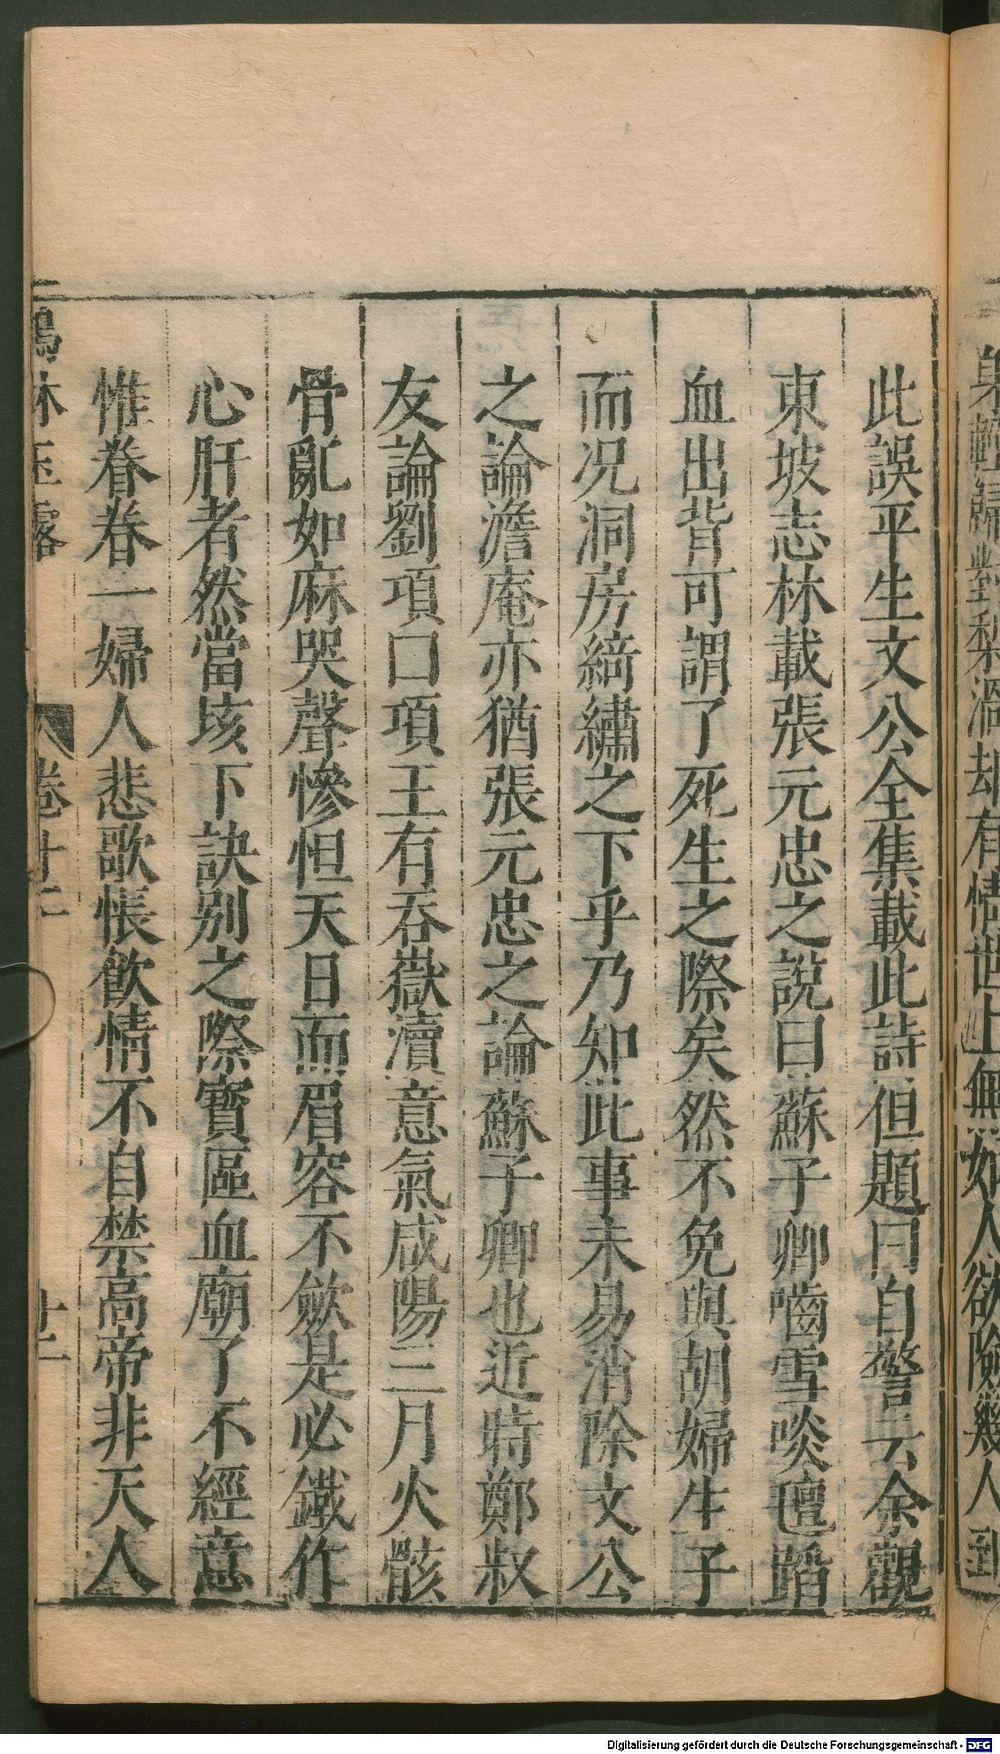 此誤平生文公全集載此詩但題曰自警云余觀
東坡志林載張元忠之說曰蘇子卿嚙雪啖氊蹈
血出背可謂了死生之際矣然不免與胡婦生子
而况洞房綺繡之下乎乃知此事未易消除文公
之論澹庵亦猶張元忠之論蘇子卿也近時鄭叔
友論劉項曰項王有吞嶽瀆意氣咸陽三月火骸
骨亂如麻哭聲慘怛天日而眉容不歛是必鐵作
心肝者然當垓下訣别之際寳區血廟了不經意
惟眷眷一婦人悲歌悵飲情不自禁高帝非天人
鶴林玉露 卷十二 廿二
歸對梨渦却有情世上無如人欲險幾人到
Digitalisierung gefördert durch die Deutsche Forschungsgemeinschaft - DFG